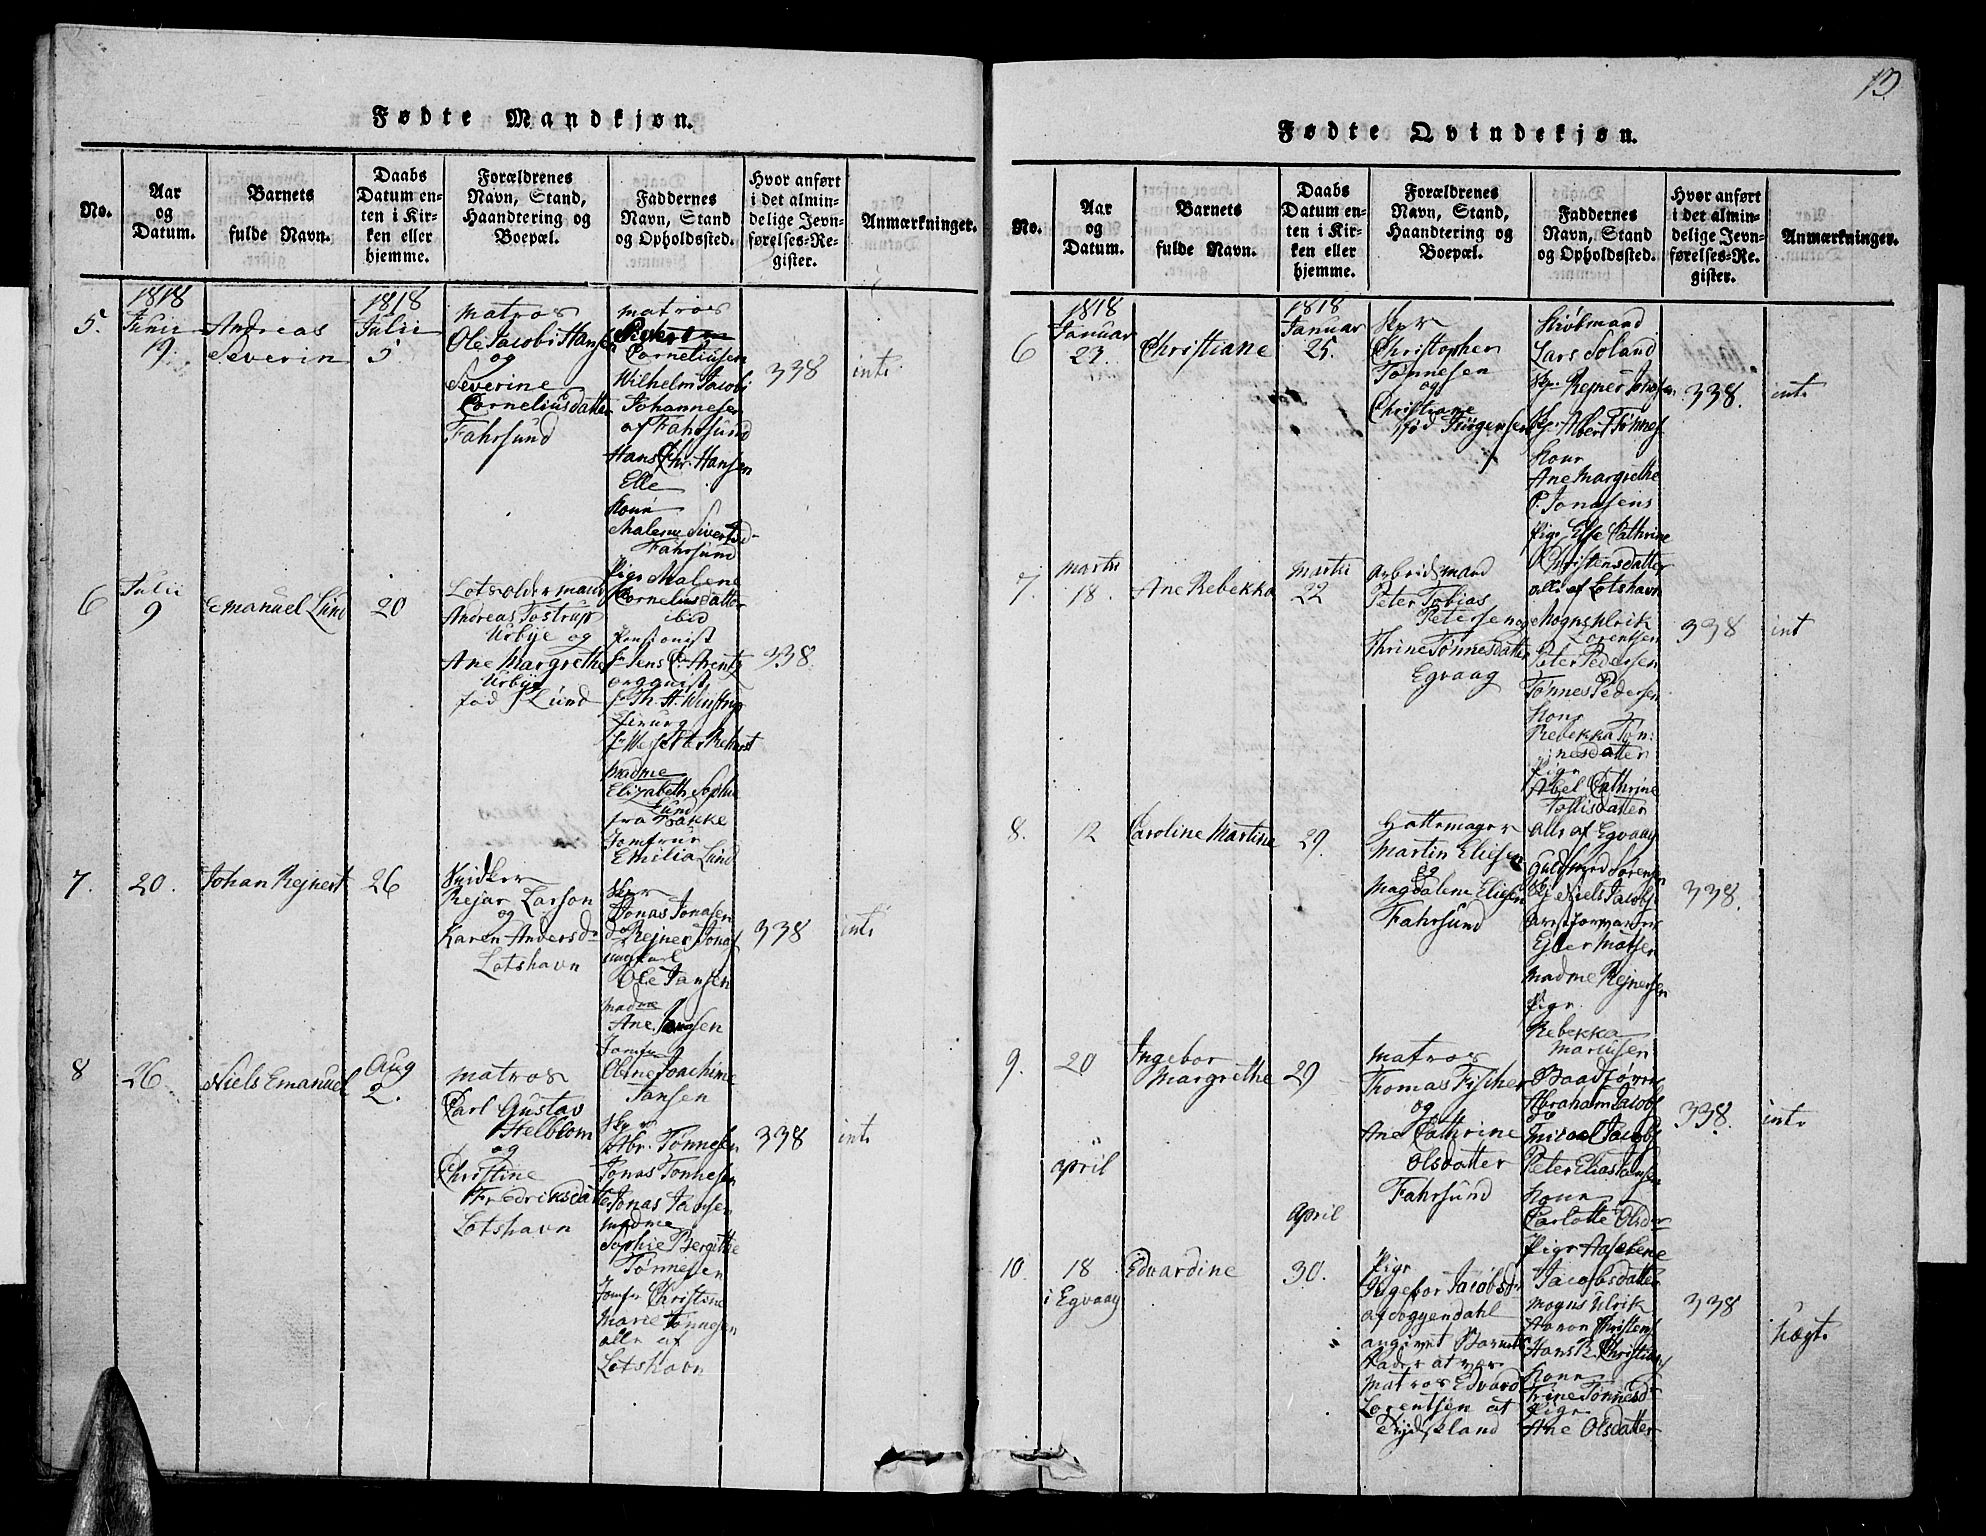 13
Fødte Mandkjøn.
No.
Aar
og
Datum.
Barnets
fulde Navn.
Daabs
Datum en-
ten i Kir-
ken eller
hjemme.
Forældrenes
Navn, Stand,
Haandtering og
Boepæl.
Faddernes
Navn, Stand
og Opholdssted.
Hvor anført
i det almin-
delige Jevn-
førelses-Re-
gister.
Anmærkninger.
5.
1818
Junii
19.
Andreas
Severin
1818
Julii
5
matros
Ole Jacobi Hansen
og
Severine
Corneliusdatter
Fahrsund
matros
Corneliusen
Wilhelm Jacobi
Johannesen
af Fahrsund
Hans Chr. Hansen
Elle
Kone
Malene Sivertsd
Fahrsund
Pige Malene
Corneliusdatter
ibid
338
int.
6
Julii
9
Emanuel Lund
20
Lotsoldermand
Andreas Tostrup
Urbye og
Ane Margrethe
Urbye
fød Lund
Pensionist
Hr Jens C. Arentz
organist
Hr Th. H. Winstrup
Chirurg
Madme
Elizabeth Sophie
Lund
fra Bakke
Jomfrue
Emilia Lund
338.
7.
20.
Johan Rejnert
26
Snidker
Rejar Larson
og
Karen Andersdr
Lotshavn
Skpr
Jonas Jonasen
do Rejner Jonas
ungkarl
Ole Jansen
madme
Ane Jansen
Jomfr
Oline Joachime
Jansen
338
int.
8
26.
Niels Emanuel
Aug
2.
matros
Carl Gustav
Helblom
og
Christine
Fredriksdatter
Lotshavn
Skpr
Abr. Tønnesen
Jonas Tønnesen
Jonas Jansen
madme
Sophie Bergithe
Tønnesen
Jomfr Christine
Marie Tønnesen
alle af
Lotshavn
338
int.
Fødte Qvindekjøn.
No.
Aar
og
Datum.
Barnets
fulde Navn.
Daabs
Datum en-
ten i Kir-
ken eller
hjemme.
Forældrenes
Navn, Stand,
Haandtering og
Boepæl.
Faddernes
Navn, Stand
og Opholdssted.
Hvor anført
i det almin-
delige Jevn-
førelses-Re-
gister.
Anmærkninger.
6
1818
Januar
23.
Christiane
1818
Januar
25.
Skpr
Christopher
Tønnesen
og
Christiane
fød Jürgensen
Kiøbmand
Lars Soland
Skpr Rejner Jonasen
Skpr Albert Tønnes
Kone
Ane Margrethe
P. Jonasens
Pige Else Cathrine
Christensdatter
alle af Lotshavn
338.
int.
7.
Martii
18.
Ane Rebekka
Martii
22
Arbeidsmand
Peter Tobias
Petersen og
Thrine Tønnesdatter
Egvaag
Mogns Ulrik
Lorentsen
Peter Pedersen
Tønnes Pedersen
Kone
Rebekka Tøn-
nesdatter
Pige
Abel Cathrine
Tollisdatter
alle af Egvaag
338
int
8.
12
Caroline Martine
29.
Hattemager
Martin Eliesen
og
Magdalene Eliesen
Fahrsund
Guldsmed Sørensen
Skp Niels Jacobs
Arrestforvarer
Ejler Matsen
Madme Rejnersen
Pige
Rebekka
Mariusen
338.
9.
20
Ingebor
Margrethe
29
matros
Thomas Fischer
og
Ane Cathrine
Olsdatter
Fahrsund
Baadsører
Abraham Jacobs
Peter Elias Hansen
Kone
Carlotte Olsdr
Pige Aaselene
Jacobsdatter
338.
int.
"
April
April
10.
18
i Egvaag
Edvardine
30.
"
Pige
Ingebor Jacobsdr
af Foggendahl
angivet Barnets
Fader at være
Matros Edvard
Lorentsen af
Tydskland
Mogns Ulrik
Aaron Christens
Hans R. Christians
Kone
Trine Tønnesdr
Pige
Ane Olsdatter
338
Uægt.